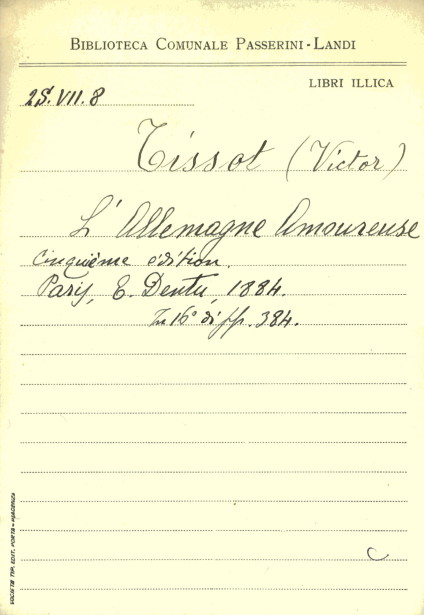 BIBLIOTECA COMUNALE PASSERINI-LANDI
LIBRI ILLICA
2S.VII.8
Tissot (Victor)
L'Allemagne Amoureuse
cinquième édition.
Paris, E. Dentu, 1884.
In 16° di pp. 384.
SOCIETÀ TIP. EDIT. PORTA - PIACENZA